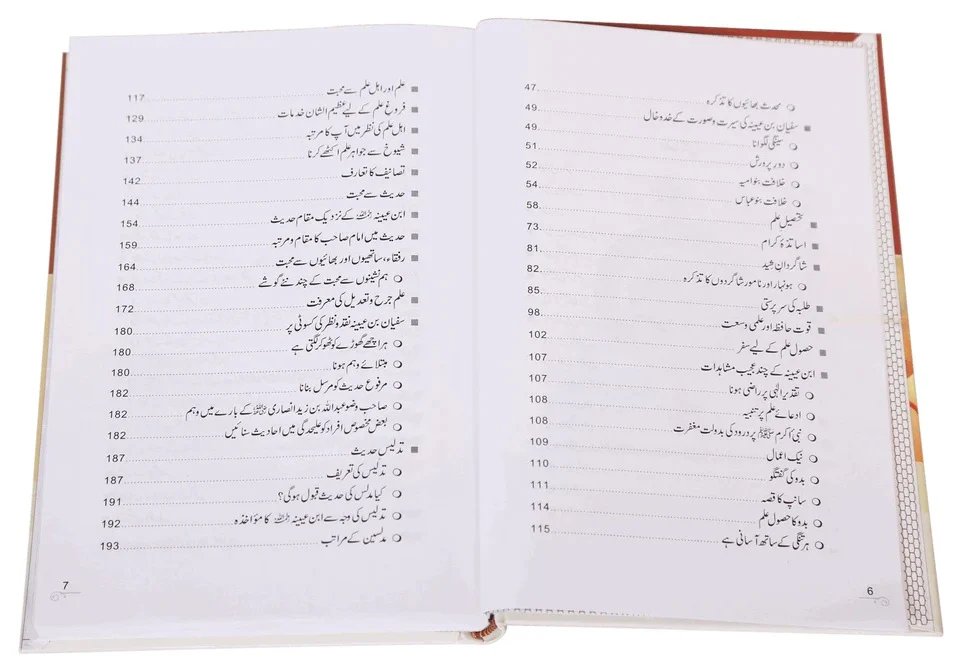 محدث بھائیوں کا تذکرہ 47
سفیان بن عیینہ کی سیرت وصورت کے خدوخال 49
سینگی لگوانا 49
دور پرورش 51
خلافت بنو امیہ 52
خلافت بنو عباس 54
تحصیل علم 58
اساتذۂ کرام 73
شاگردان رشید 81
ہونہار اور نامور شاگردوں کا تذکرہ 82
طلبہ کی سرپرستی 85
قوت حافظہ اور علمی وسعت 98
حصول علم کے لیے سفر 102
ابن عیینہ کے چند عجیب مشاہدات 107
تقدیر الٰہی پر راضی ہونا 107
ادعائے علم پر تنبیہ 108
نبی اکرم ﷺ پر درود کی بدولت مغفرت 108
نیک اعمال 109
بدو کی گفتگو 110
سانپ کا قصہ 111
بدو کا حصول علم 114
ہر تنگی کے ساتھ آسانی ہے 115
6
علم اور اہل علم سے محبت 117
فروغ علم کے لیے عظیم الشان خدمات 129
اہل علم کی نظر میں آپ کا مرتبہ 134
شیوخ سے جواہر علم اکٹھے کرنا 137
تصانیف کا تعارف 142
حدیث سے محبت 144
ابن عیینہ رحمہ اللہ کے نزدیک مقام حدیث 154
حدیث میں امام صاحب کا مقام ومرتبہ 159
رفقاء، ساتھیوں اور بھائیوں سے محبت 164
ہم نشینوں سے محبت کے چند نئے گوشے 168
علم جرح وتعدیل کی معرفت 172
سفیان بن عیینہ نقد ونظر کی کسوٹی پر 180
ہر اچھے گھوڑے کو ٹھوکر لگتی ہے 180
مبتلائے وہم ہونا 180
مرفوع حدیث کو مرسل بنانا 182
صاحب وضو عبداللہ بن زید انصاری رضی اللہ عنہ کے بارے میں وہم 182
بعض مخصوص افراد کو علیحدگی میں احادیث سنائیں 182
تدلیس حدیث 187
تدلیس کی تعریف 187
کیا مدلس کی حدیث قبول ہوگی؟ 191
تدلیس کی وجہ سے ابن عیینہ رحمہ اللہ کا مؤاخذہ 192
مدلسین کے مراتب 193
7